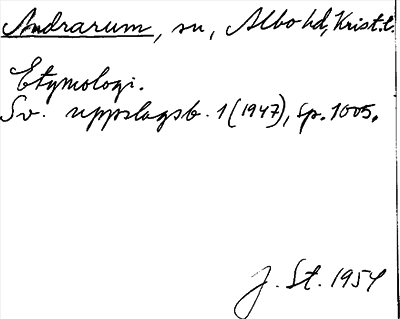 Andrarum, sn, Albo hd, Krist. l.
Etymologi.
Sv. uppslagsb. 1 (1947), sp. 1005.
J. St. 1954